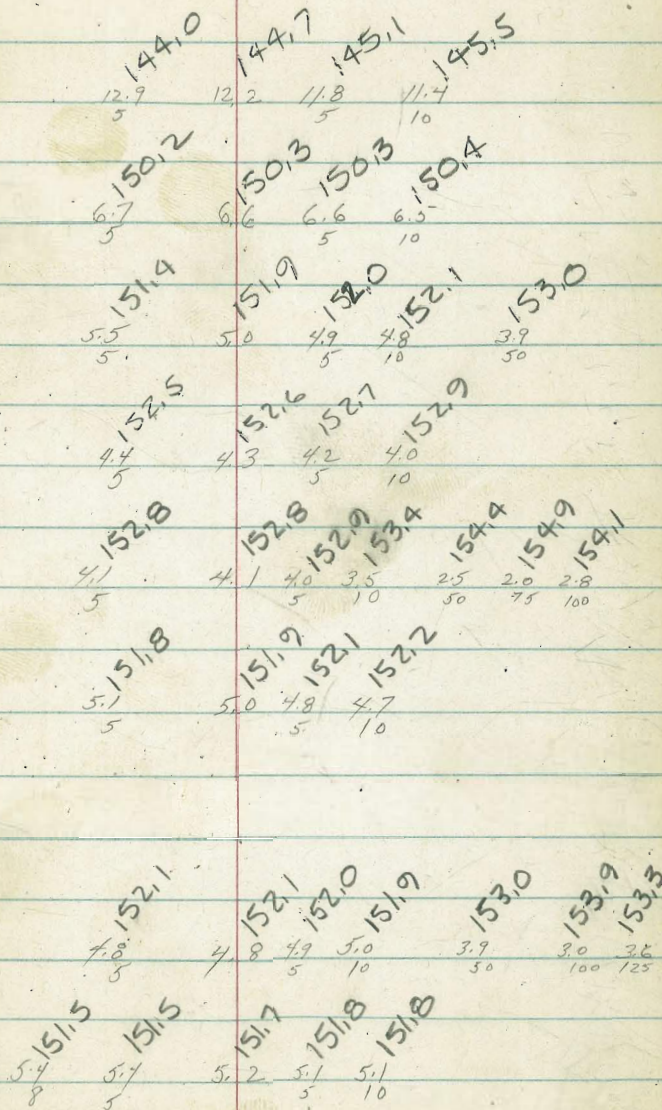 144,0 144,7 145,1 145,5
12.9 12.2 11.8 11.4
5 5 10
150,2 150,3 150,3 150,4
6.7 6.6 6.6 6.5
5 5 10
151,4 151,9 152,0 152,1 153,0
5.5 5.0 4.9 4.8 3.9
5 5 10 50
152,5 152,6 152,7 152,9
4.4 4.3 4.2 4.0
5 5 10
152,8 152,8 152,9 153,4 154,4 154,9 154,1
4.1 4.1 4.0 3.5 2.5 2.0 2.8
5 5 10 50 75 100
151,8 151,9 152,1 152,2
5.1 5.0 4.8 4.7
5 5 10
152,1 152,1 152,0 151,9 153,0 153,9 153,3
4.8 4.8 4.9 5.0 3.9 3.0 3.6
5 5 10 50 100 125
151,5 151,5 151,7 151,8 151,8
5.4 5.4 5.2 5.1 5.1
8 5 5 10